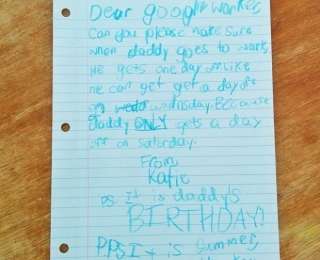 Dear google worker,
Can you please make sure
when daddy goes to work,
he gets one day off. Like
he can get a day off
on wednesday. Because
daddy ONLY gets a day
off on saturday.
From,
Katie
P.S. It is daddy's
BIRTHDAY!
P.P.S. It is summer,